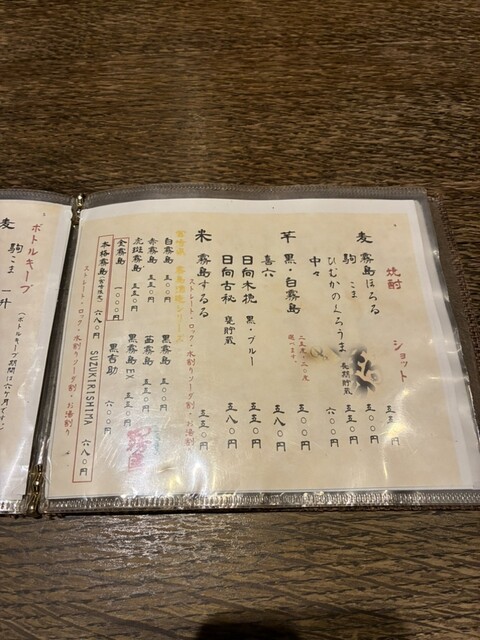 焼酎 ショット
麦 霧島ほろる 五五〇円
駒こま 五五〇円
ひむかのくろうま 長期貯蔵 六〇〇円
中々
二五度・二〇度
選べます。
芋 黒・白霧島 五〇〇円
㐂六 五八〇円
日向木挽 黒・ブルー 五五〇円
日向古秘 甕貯蔵 五八〇円
米 霧島するる 五五〇円
ストレート・ロック・水割り・ソーダ割・お湯割り
宮崎県 霧島酒造シリーズ
白霧島 五〇〇円 黒霧島 五〇〇円
赤霧島 五五〇円 茜霧島 五五〇円
虎斑霧島 五五〇円 黒霧島EX 五五〇円
金霧島 一〇〇〇円 黒吉助 六〇〇円
本格霧島(宮崎限定) 六八〇円 SUZUKIRISHIMA 六八〇円
ストレート・ロック・水割り・ソーダ割・お湯割り
ボトルキープ
(ボトルキープ期間は六ケ月です
麦 駒こま 一升